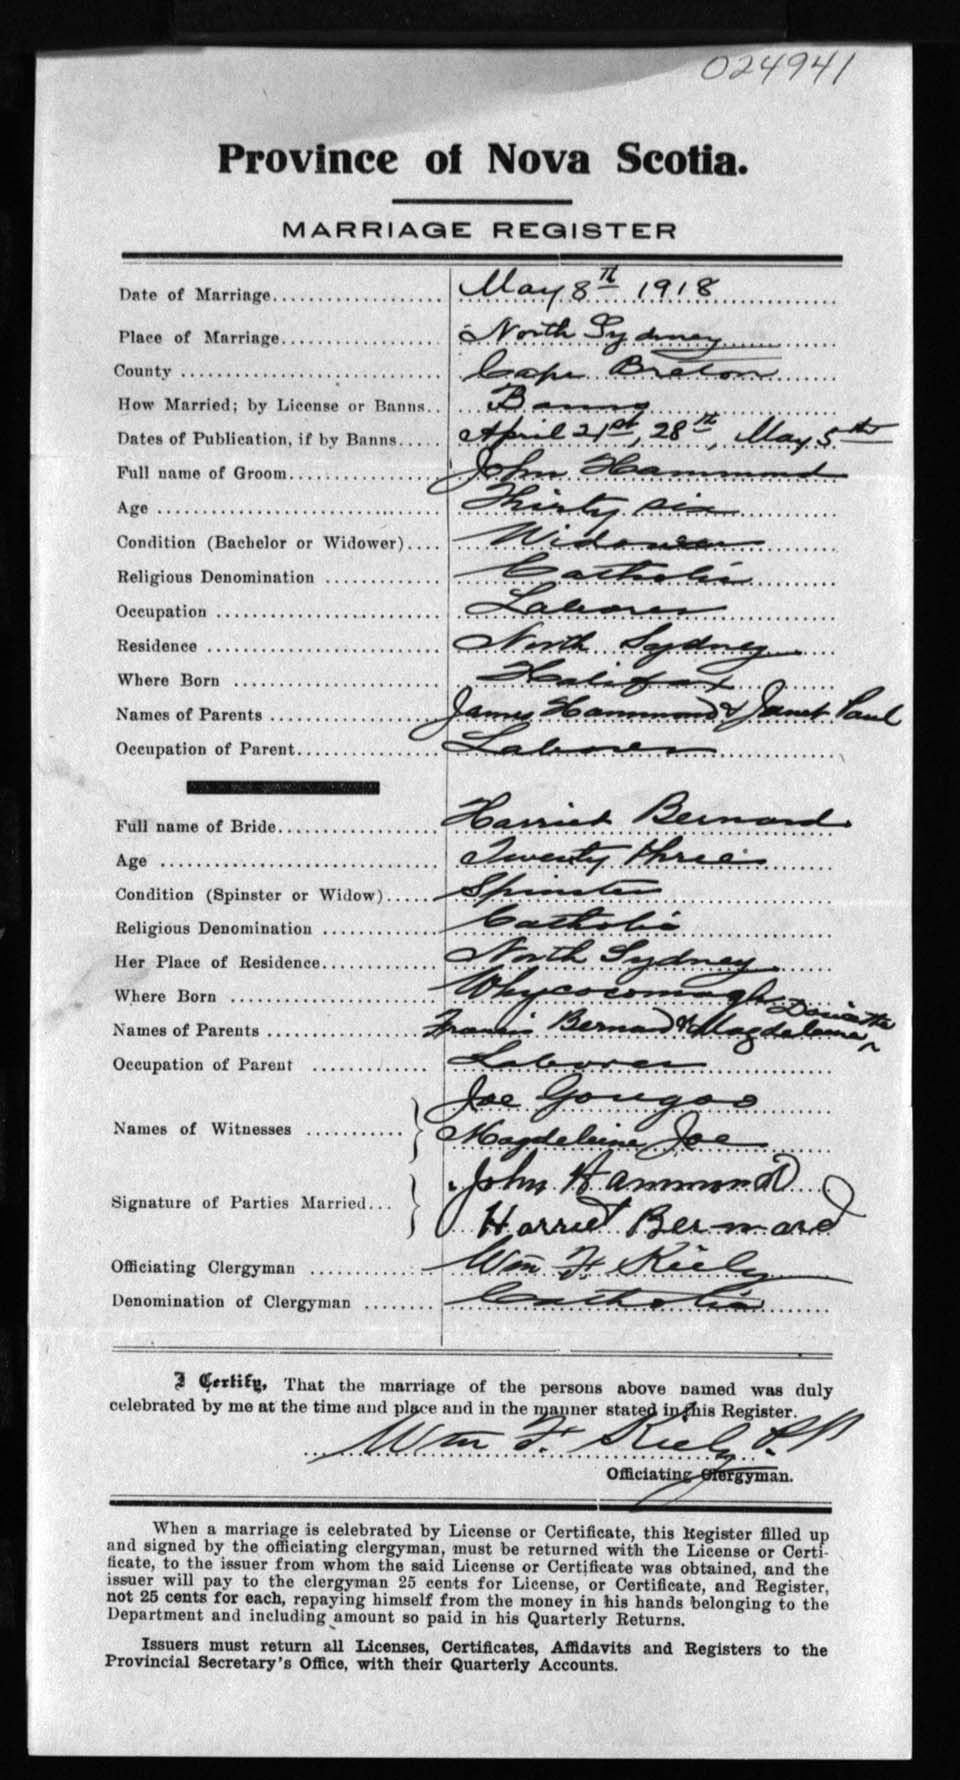 024941
Province of Nova Scotia.
MARRIAGE REGISTER
Date of Marriage.................... May 8th 1918
Place of Marriage................... North Sydney
County .............................. Cape Breton
How Married; by License or Banns.. Banns
Dates of Publication, if by Banns..... April 21st, 28th, May 5th
Full name of Groom.................. John Hammond
Age ................................. Thirty six
Condition (Bachelor or Widower).... Widower
Religious Denomination .............. Catholic
Occupation .......................... Laborer
Residence ........................... North Sydney
Where Born ......................... Halifax
Names of Parents .................... James Hammond & Janet Paul
Occupation of Parent................. Laborer
Full name of Bride................... Harriet Bernard
Age ................................. Twenty three
Condition (Spinster or Widow)...... Spinster
Religious Denomination .............. Catholic
Her Place of Residence.............. North Sydney
Where Born ......................... Whycocomagh
Names of Parents .................... Francis Bernard & Magdeleine
Occupation of Parent .............. Laborer
Names of Witnesses ........... Joe Gougoo
Magdeleine Joe
Signature of Parties Married... John Hammond
Harriet Bernard
Officiating Clergyman .............. Wm F. Kiely
Denomination of Clergyman ........ Catholic
I Certify, That the marriage of the persons above named was duly
celebrated by me at the time and place and in the manner stated in this Register.
Wm F. Kiely P.P.
Officiating Clergyman.
When a marriage is celebrated by License or Certificate, this Register filled up
and signed by the officiating clergyman, must be returned with the License or Certi-
ficate, to the issuer from whom the said License or Certificate was obtained, and the
issuer will pay to the clergyman 25 cents for License, or Certificate, and Register,
not 25 cents for each, repaying himself from the money in his hands belonging to the
Department and including amount so paid in his Quarterly Returns.
Issuers must return all Licenses, Certificates, Affidavits and Registers to the
Provincial Secretary's Office, with their Quarterly Accounts.